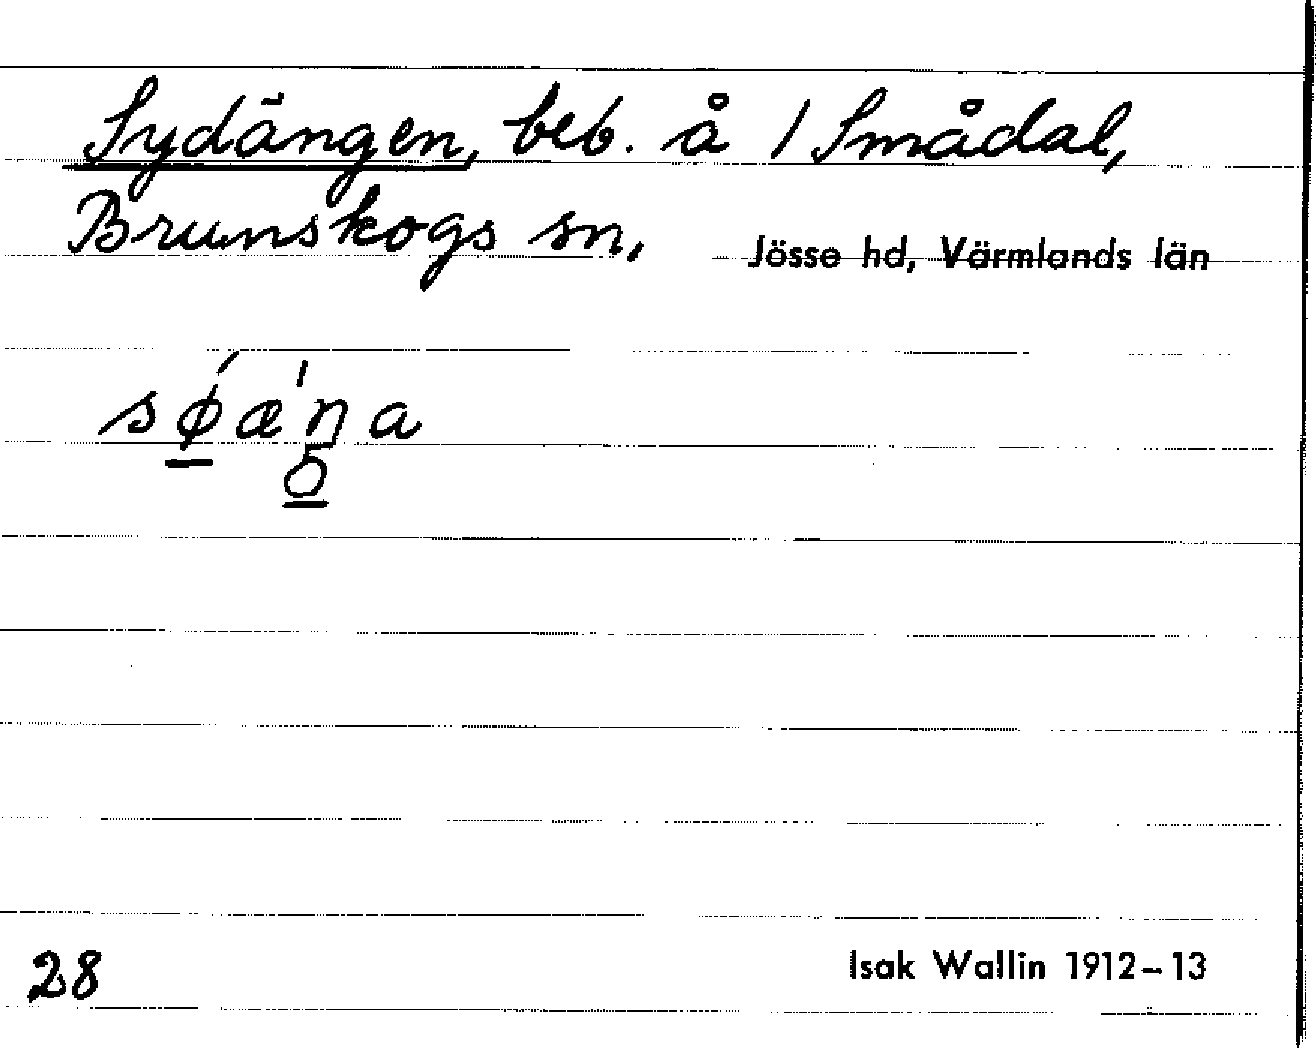 Sydängen, beb. å 1 Smådal,
Brunskogs sn, Jösse hd, Värmlands län
sǿæ'ŋa
28 Isak Wallin 1912–13